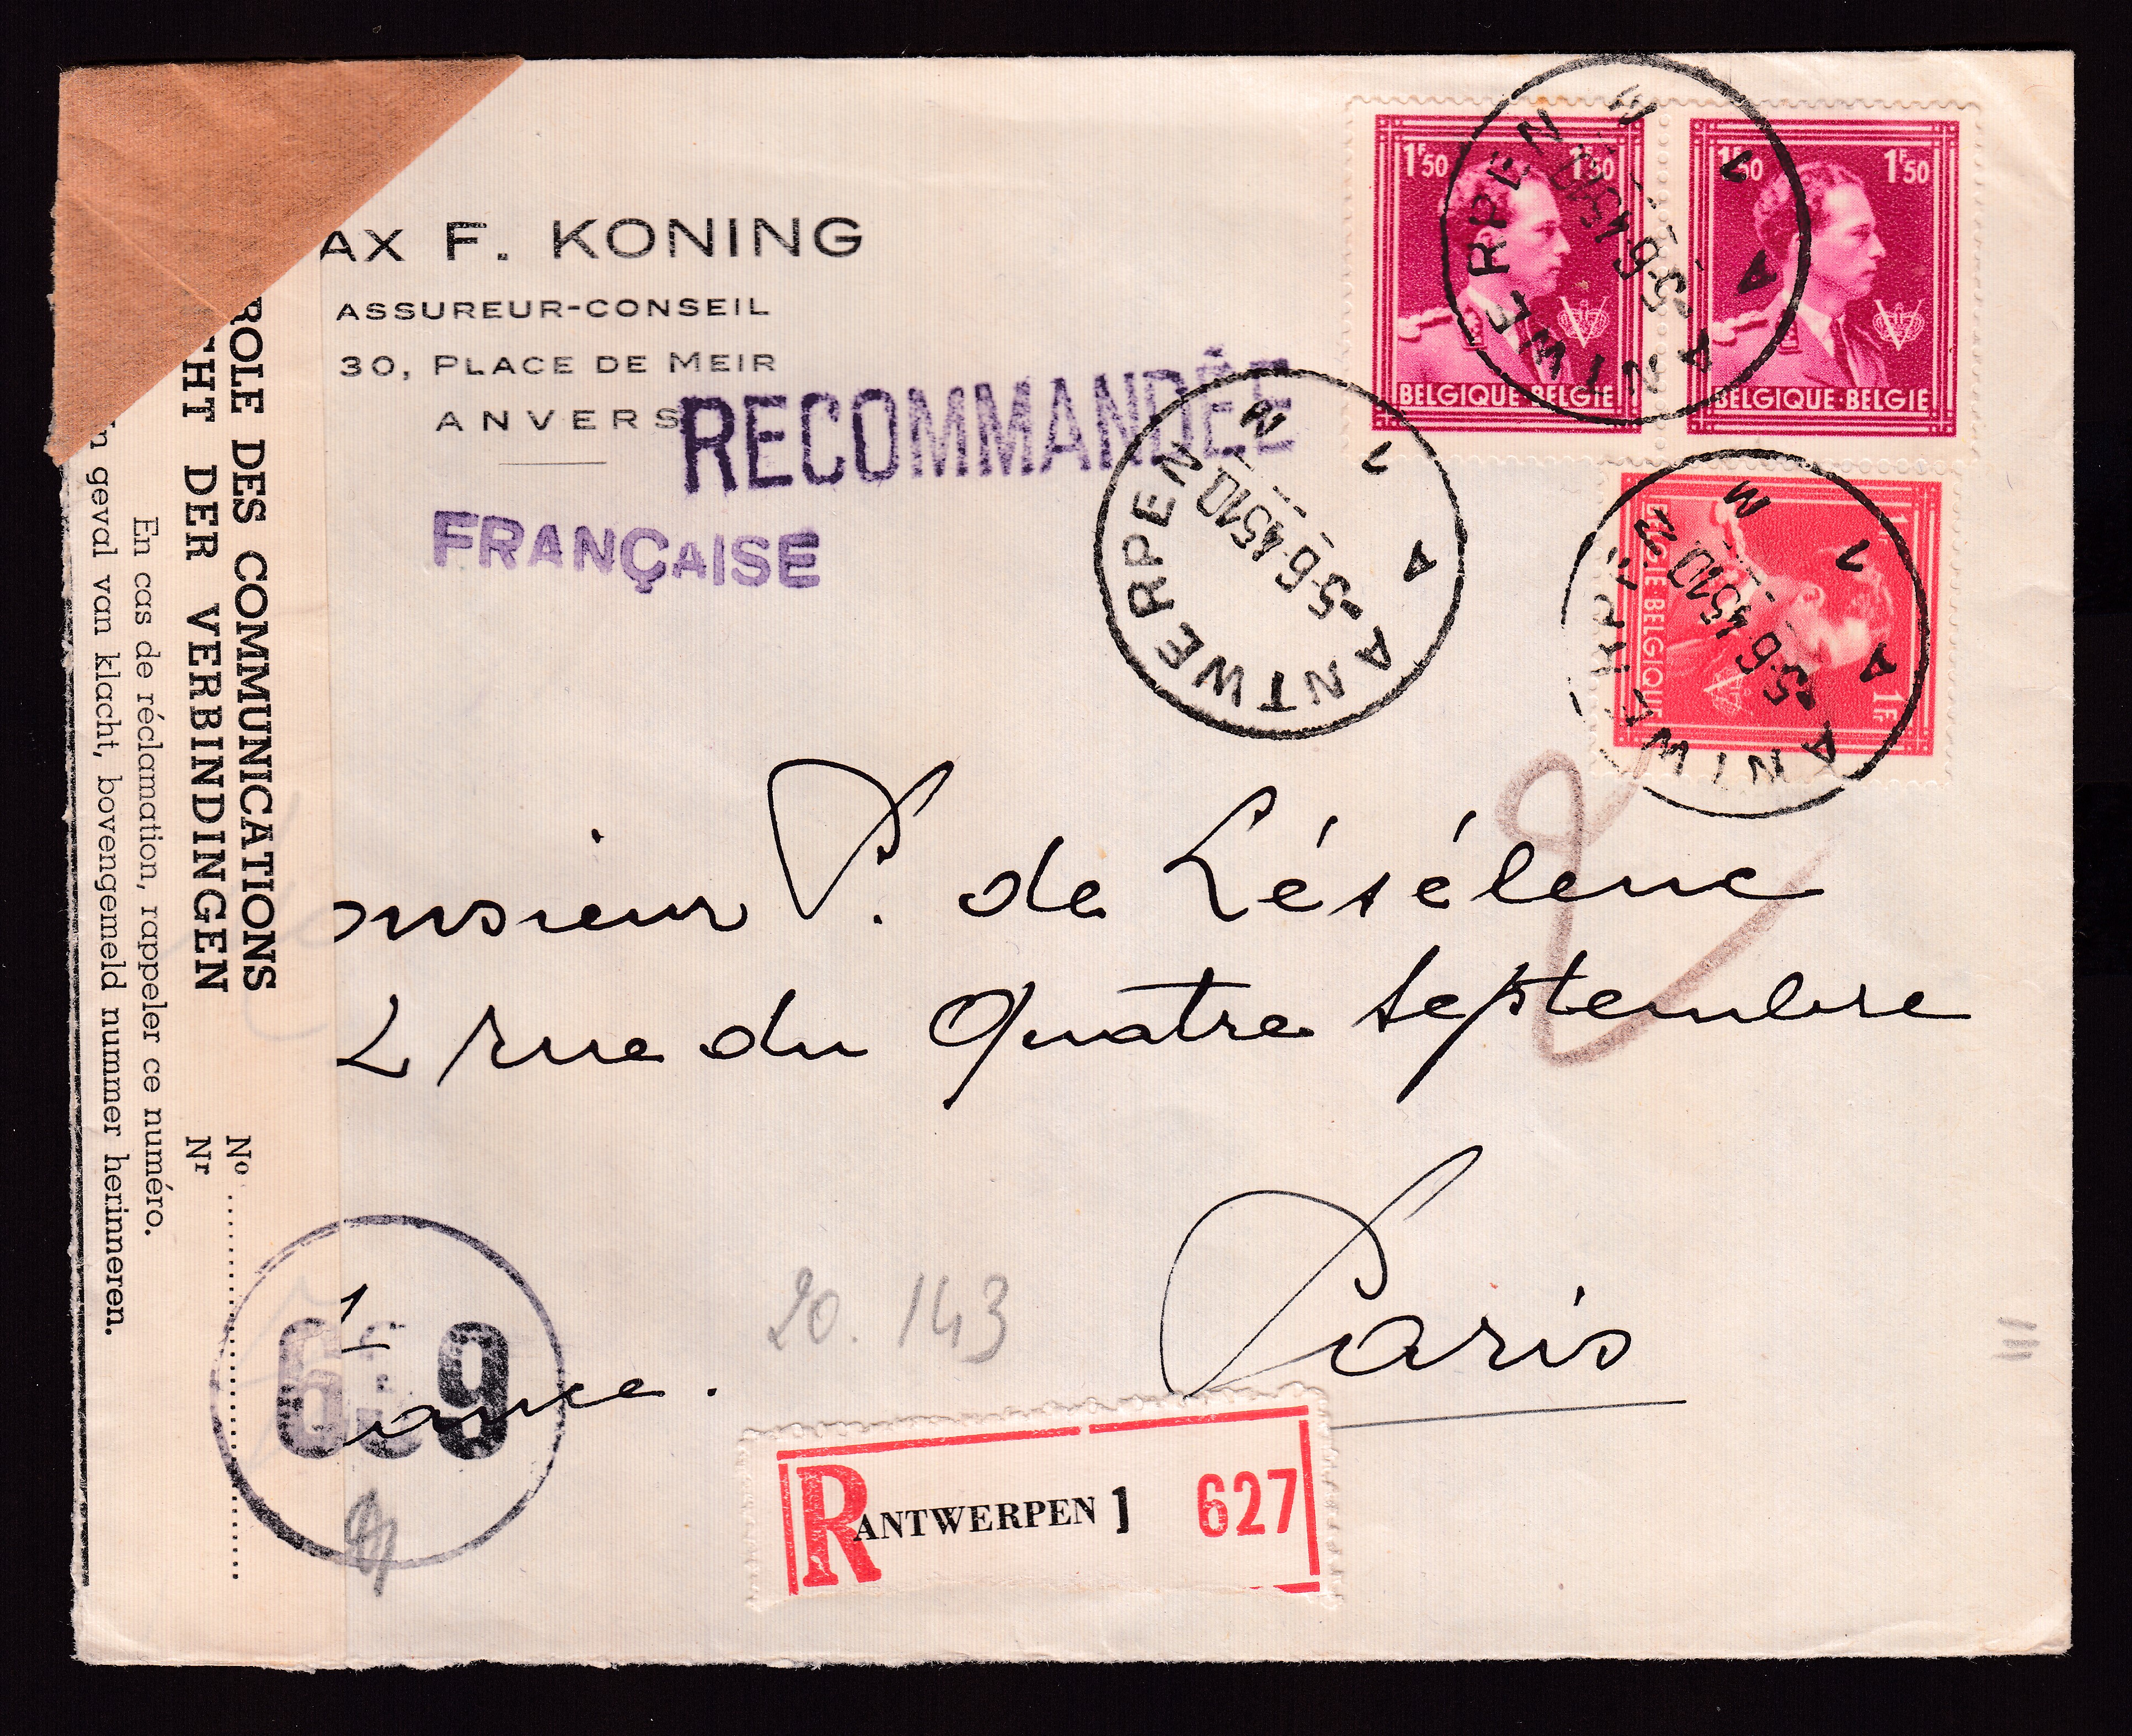 AX F. KONING
ASSUREUR-CONSEIL
30, PLACE DE MEIR
ANVERS
RECOMMANDÉE
FRANÇAISE
1F50 1F50
BELGIQUE·BELGIE
1F50 1F50
BELGIQUE·BELGIE
1F 1F
BELGIE·BELGIQUE
ANTWERPEN
A 1 M
-5-6-45 10
ANTWERPEN
A 1 M
-5-6-45 10
ANTWERPEN
A 1 M
-5-6-45 10
ROLE DES COMMUNICATIONS
HT DER VERBINDINGEN
No
Nr
En cas de réclamation, rappeler ce numéro.
In geval van klacht, bovengemeld nummer herinneren.
onsieur P. de Lésélenc
2 rue du Quatre Septembre
Paris
ance.
20.143
R ANTWERPEN 1 627